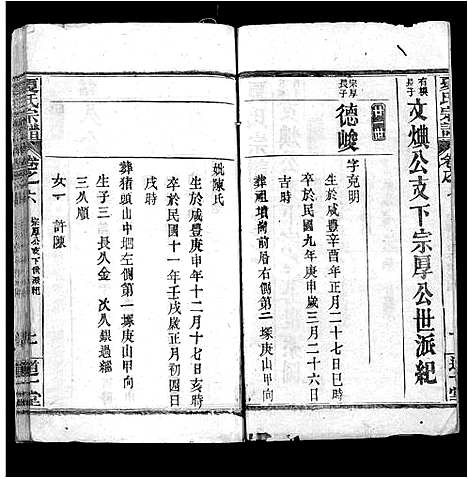 夏氏宗譜
有橫長子
文煥公支下宗厚公世派紀
廿一世
宗厚長子
德峻
字克明
生於咸豐辛酉年正月二十七日巳時
卒於民國九年庚申歲三月二十六日
吉時
葬祖墳嶺前局右側第二塚庚山甲向
妣陳氏
生於咸豐庚申年十二月十七日亥時
卒於民國十一年壬戌歲正月初四日
戌時
葬豬頭山中垇左側第一塚庚山甲向
生子三 長久金 次久銀過繼
三久順
女一 許陳
夏氏宗譜
卷之六
宗厚公支下世派紀
上
道一堂